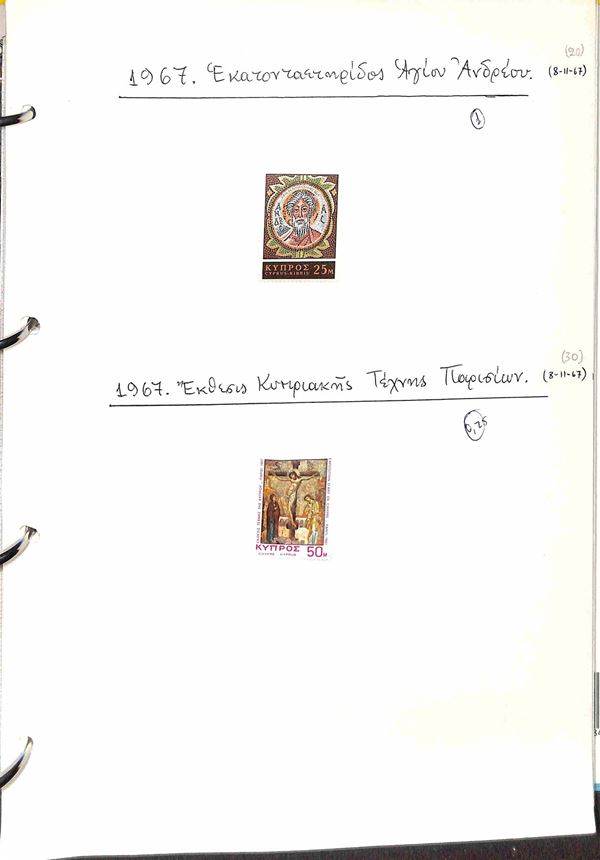 (20)
1967. Ἑκατονταετηρίδος Ἁγίου Ἀνδρέου. (8-11-67)
1
ΑΝΔΡΕ ΑΣ
ΚΥΠΡΟΣ 25M
CYPRUS·KIBRIS
(30)
1967. Ἔκθεσις Κυπριακῆς Τέχνης Παρισίων. (8-11-67)
0,25
ΚΥΠΡΟΣ 50M